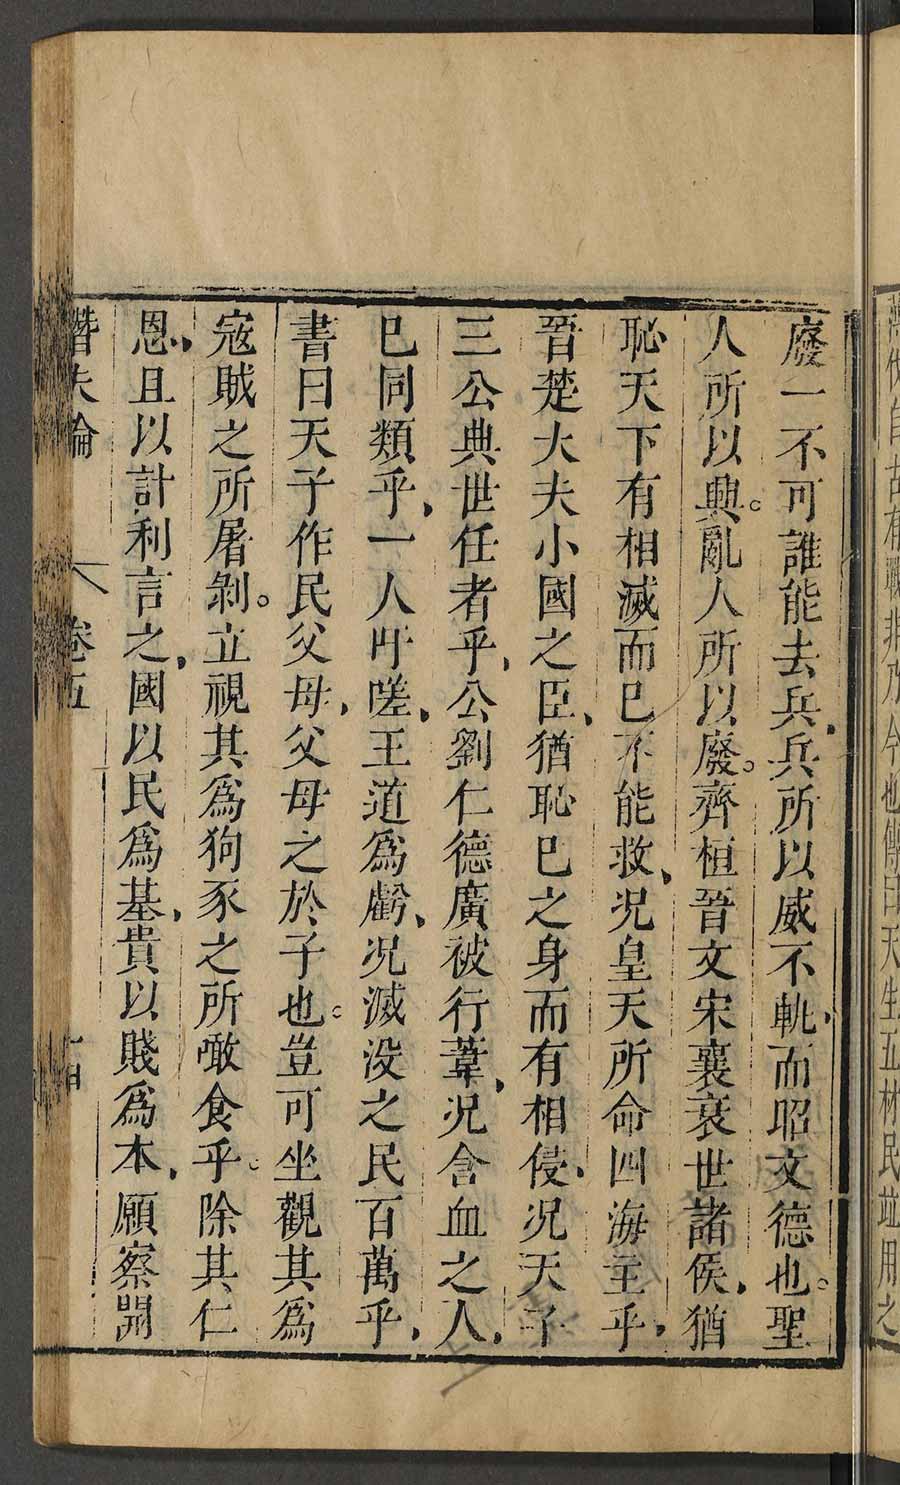 蕩伐自古有戰非乃今也傳曰天生五材民並用之
廢一不可誰能去兵兵所以威不軌而昭文德也聖
人所以興亂人所以廢齊桓晉文宋襄衰世諸侯猶
恥天下有相滅而已不能救况皇天所命四海主乎
晉楚大夫小國之臣猶恥已之身而有相侵况天子
三公典世任者乎公劉仁德廣被行葦况含血之人
已同類乎一人吁嗟王道爲虧况滅没之民百萬乎
書曰天子作民父母父母之於子也豈可坐觀其爲
寇賊之所屠剝立視其爲狗豕之所噉食乎除其仁
恩且以計利言之國以民爲基貴以賤爲本願察開
潛夫論 卷五